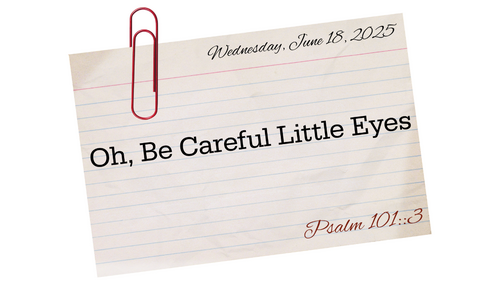 Wednesday, June 18, 2025
Oh, Be Careful Little Eyes
Psalm 101::3